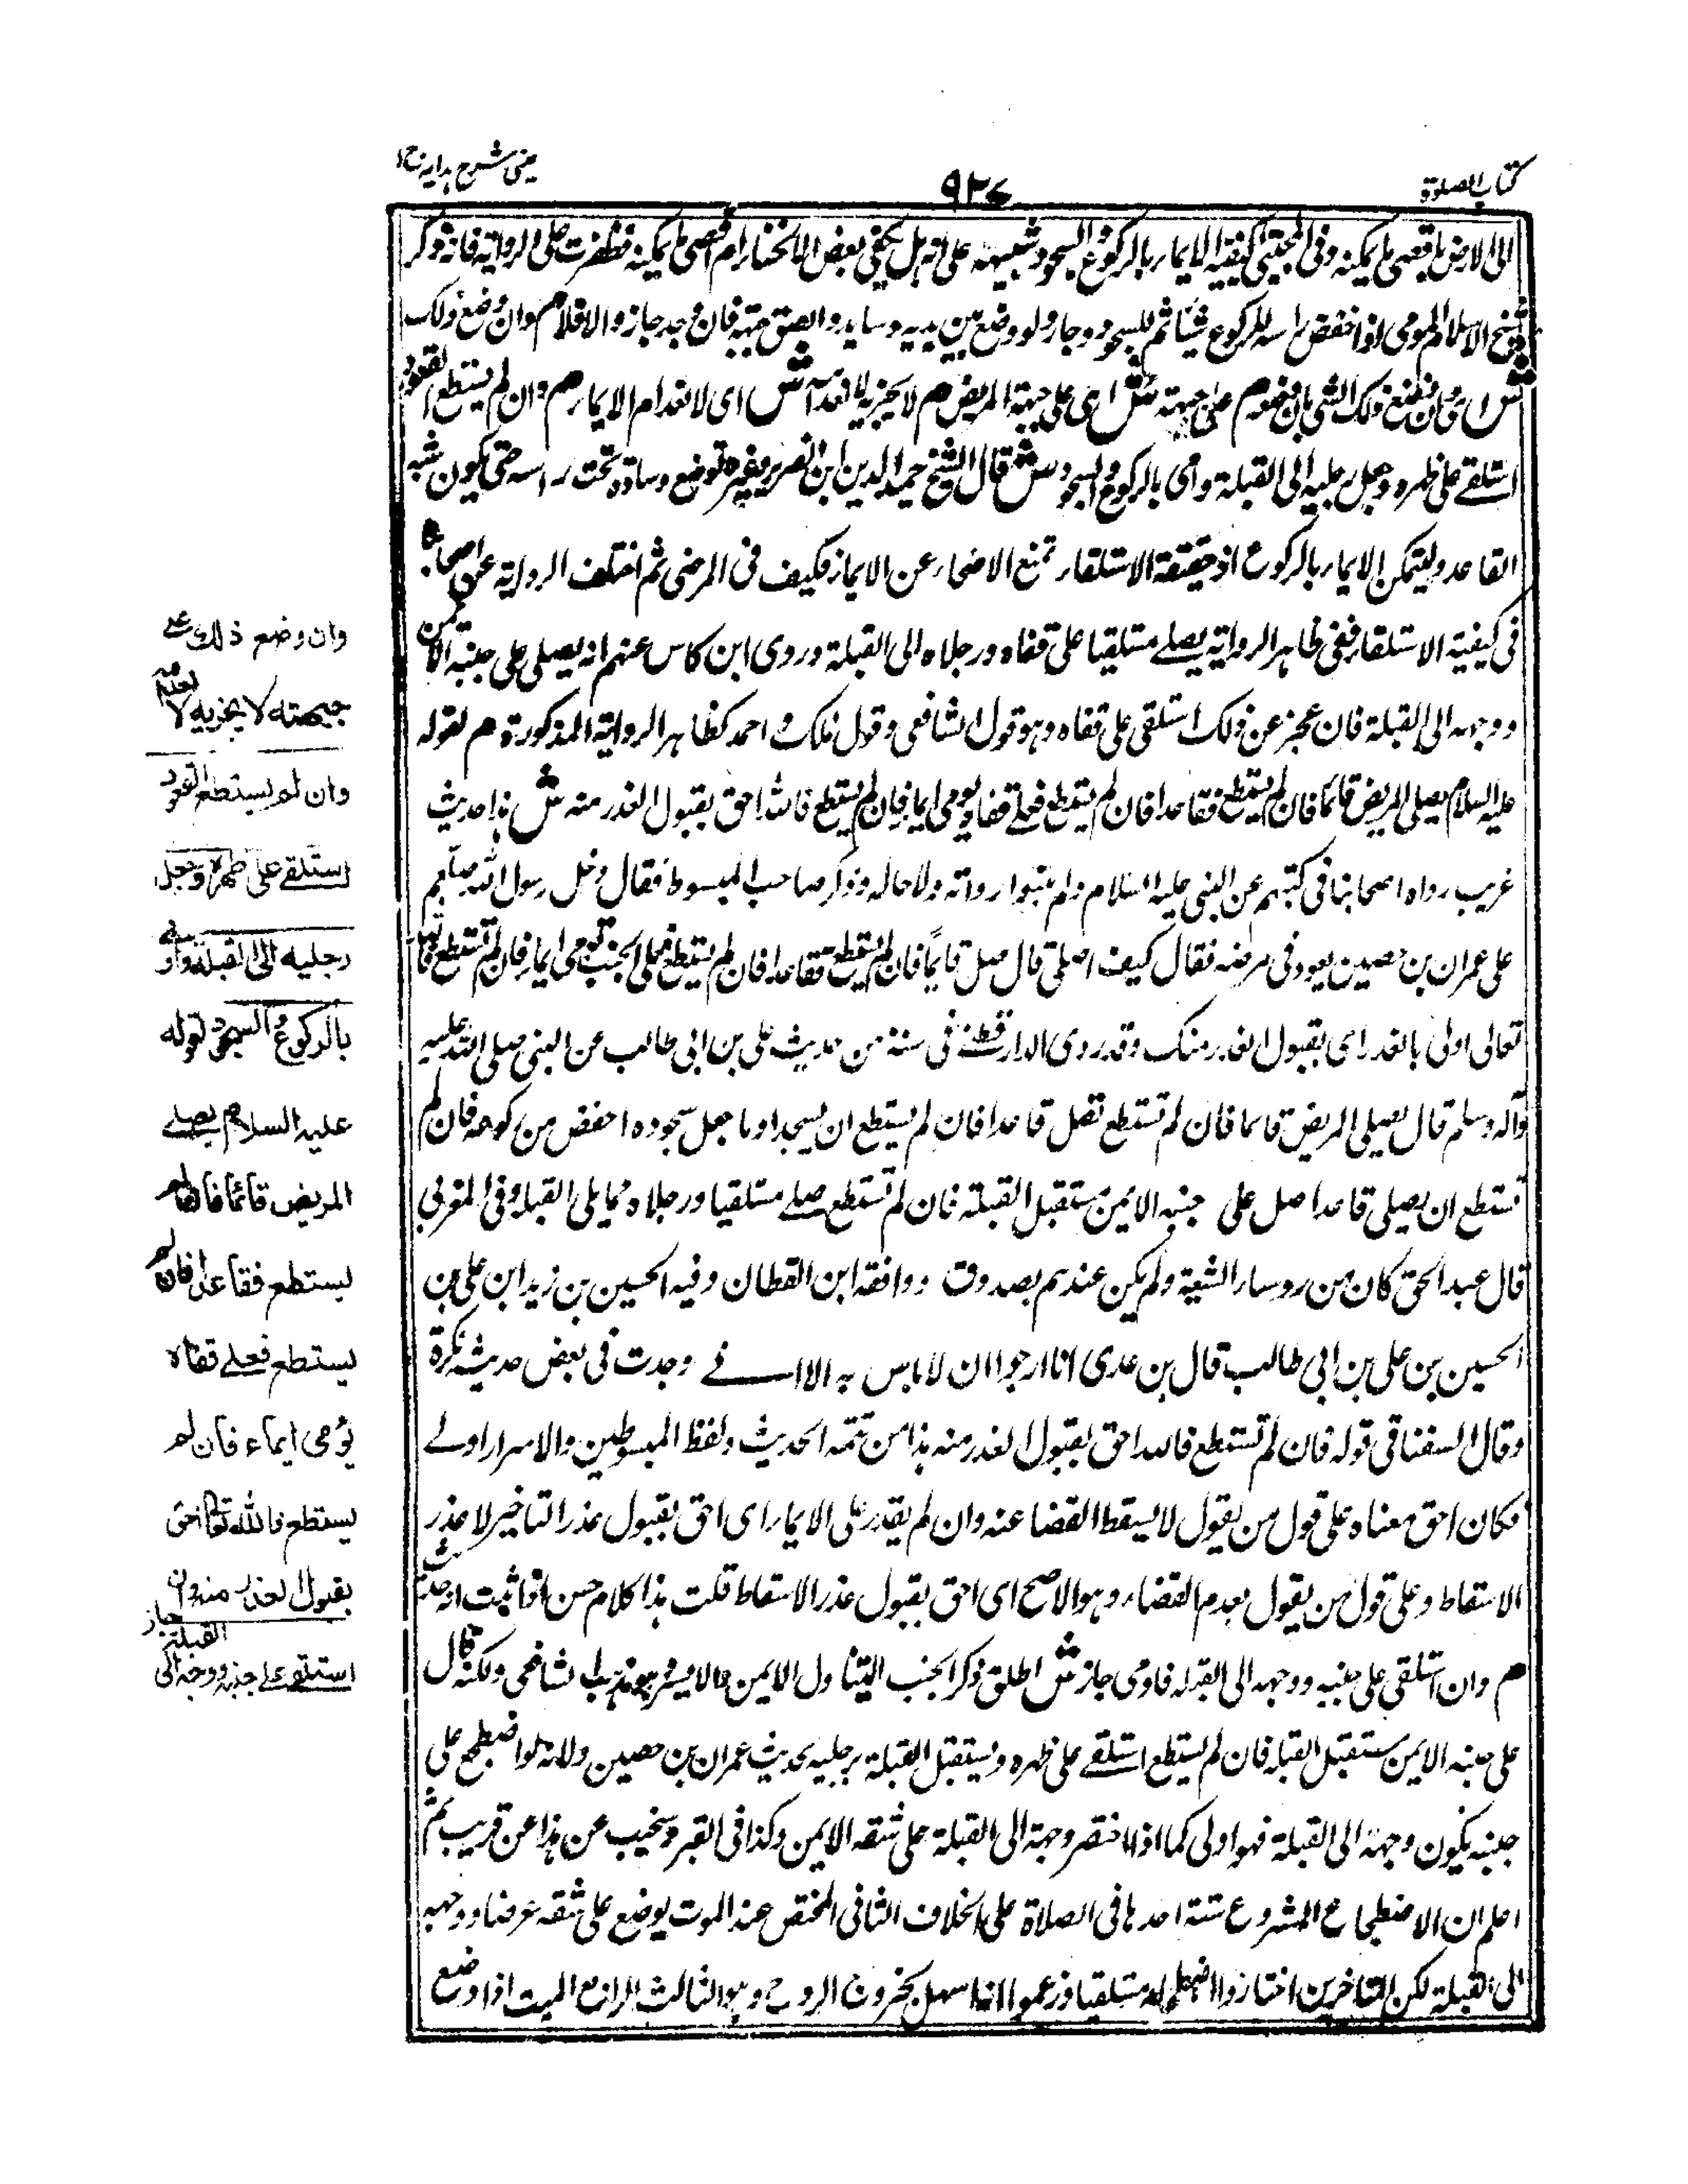 كتاب الصلوة
٩٢٧
عينى شرح هدايه ج١
الى الارض باقصى ما يمكنه وفى المجتبى كيفية الايماء بالركوع والسجود شبيهه على انه هل يكفى بعض الانحناء ام اقصى ما يمكنه فظفرت على الرواية فانه ذكر
شيخ الاسلام المومى اذا خفض راسه للركوع شيئا ثم للسجود جاز ولو وضع بين يديه وسايد والصق جبهته فان وجد جاز والا فلا م وان وضع ذلك
ش اى وان وضع ذلك الشى م على جبهته ش اى على جبهة المريض م لا يجزيه لانعدامه ش اى لانعدام الايماء م وان لم يستطع القعود
استلقے على ظهره وجعل رجليه الى القبلة واومى بالركوع والسجود ش قال الشيخ حميد الدين الضرير وغيره توضع وسادة تحت راسه حتى يكون شبه
القاعد وليتمكن الايماء بالركوع اذ حقيقة الاستلقاء تمنع الاصحاء عن الايماء فكيف فى المرضى ثم اختلف الرواية عن اصحابنا
فى كيفية الاستلقاء ففى ظاهر الرواية يصلے مستلقيا على قفاه ورجلاه الى القبلة وروى ابن كاس عنهم انه يصلى على جنبه الايمن
ووجهه الى القبلة فان عجز عن ذلك استلقى على قفاه وهو قول الشافعى وقول مالك و احمد كظاهر الرواية المذكورة م لقوله
عليه السلام يصلى المريض قائما فان لم يستطع فقاعدا فان لم يستطع فعلے قفاه يومى ايماء فان لم يستطع فالله احق بقبول العذر منه ش هذا حديث
غريب رواه اصحابنا فى كتبهم عن النبى عليه السلام ولم يبينوا رواته ولا حاله وذكر صاحب المبسوط فقال دخل رسول الله صلعم
على عمران بن حصين يعود فى مرضه فقال كيف اصلى قال صل قائمًا فان لم تستطع فقاعدا فان لم تستطع فعلى الجنب تومى ايماء فان لم تستطع فالله
تعالى اولى بالعذر اى بقبول العذر منك وقد روى الدارقطنے فى سننه من حديث على بن ابى طالب عن النبى صلى الله عليه
وآله وسلم قال يصلى المريض قائما فان لم تستطع تصل قاعدا فان لم يستطع ان يسجد اوما جعل سجوده اخفض من ركوعه فان لم
تستطع ان يصلى قاعدا صل على جنبه الايمن مستقبل القبلة فان لم تستطع صلے مستلقيا ورجلاه مما يلى القبلة وفى المغربى
قال عبد الحق كان من روساء الشيعة ولم يكن عندهم بصدوق ووافقه ابن القطان وفيه الحسين بن زيد ابن على بن
الحسين بن على بن ابى طالب قال بن عدى انا ارجو ان لا باس به الا انے وجدت فى بعض حديثه نكرة
وقال السغناقى قوله فان لم تستطع فالله احق بقبول العذر منه هذا من تتمه الحديث ولفظ المبسوطين والاسرار اولے
فكان احق معناه على قول من يقول لا يسقط القضا عنه وان لم يقدر على الايماء اى احق بقبول عذر التاخير لا عذر
الاسقاط وعلى قول من يقول بعدم القضاء وهو الاصح اى احق بقبول عذر الاسقاط قلت هذا كلام حسن اذا ثبت الحديث
م وان استلقى على جنبه ووجهه الى القبله فاومى جاز ش اطلق ذكر الجنب ليتناول الايمن والايسر وهو مذهب الشافعى ولكنه قال
على جنبه الايمن مستقبل القبلة فان لم يستطع استلقے على ظهره ويستقبل القبلة برجليه لحديث عمران بن حصين ولانه لو اضطجع على
جنبه يكون وجهه الى القبلة فهو اولى كما اذا احتضر وجهه الى القبلة على شقه الايمن وكذا فى القبر وسنجيب عن هذا عن قريب ثم
اعلم ان الاضطجاع المشروع ستة احدها فى الصلاة على الخلاف الثانى المحتضر عند الموت يوضع على شقه عرضا ووجهه
الى القبلة لكن المتاخرين اختاروا اضطجاعه مستلقيا وزعموا انه اسهل لخروج الروح وهو الثالث الرابع الميت اذا وضع
وان وضع ذلك علے
جبهته لا يجزيه لانعدامه
وان لم يستطع القعود
استلقے على ظهره وجعل
رجليه الى القبلة واومى
بالركوع والسجود لقوله
عليه السلام يصلے
المريض قائما فان لم
يستطع فقاعدا فان لم
يستطع فعلے قفاه
يؤمى ايماء فان لم
يستطع فالله تعالى احق
بقبول العذر منه وان
استلقى على جنبه ووجهه الى
القبلة جاز